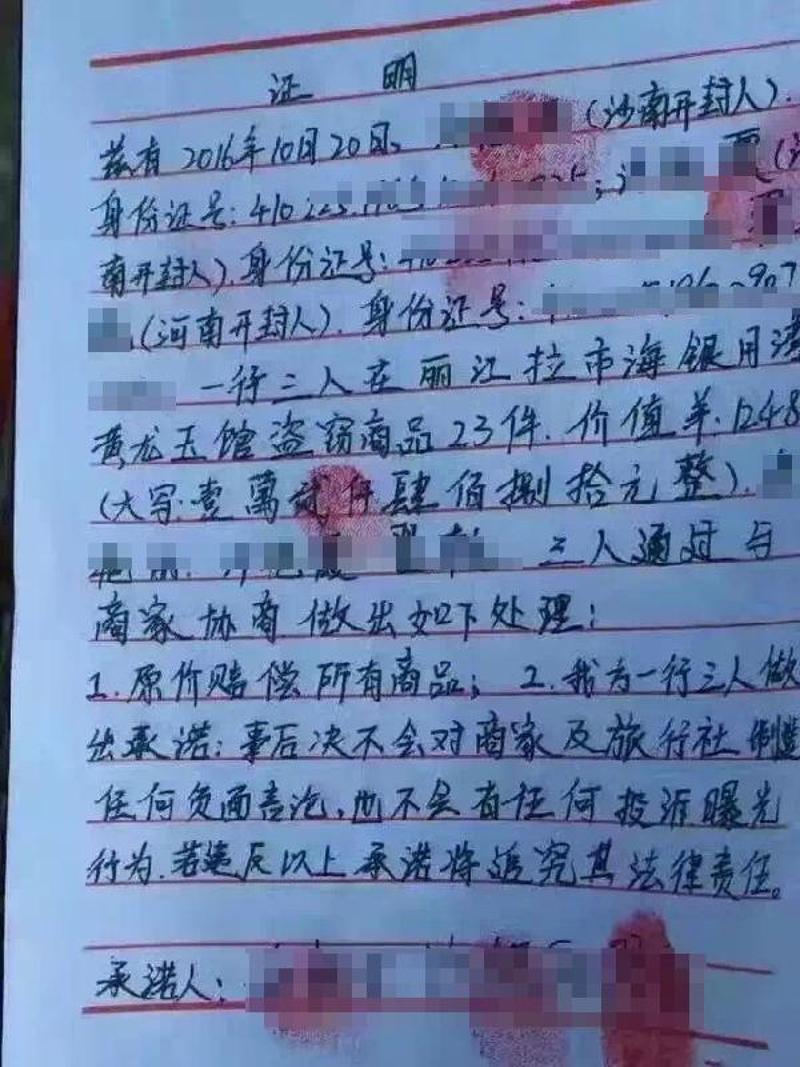 证 明
兹有 2016年10月20日, (河南开封人).
身份证号: 410225
南开封人). 身份证号:
(河南开封人). 身份证号:
一行三人在丽江拉市海银月湾
黄龙玉馆盗窃商品23件. 价值羊:1248
(大写:壹萬贰仟肆佰捌拾元整).
三人通过与
商家协商做出如下处理:
1. 原价赔偿所有商品; 2. 我方一行三人做
出承诺: 事后决不会对商家及旅行社制造
任何负面言论, 也不会有任何投诉曝光
行为. 若违反以上承诺将追究其法律责任。
承诺人: